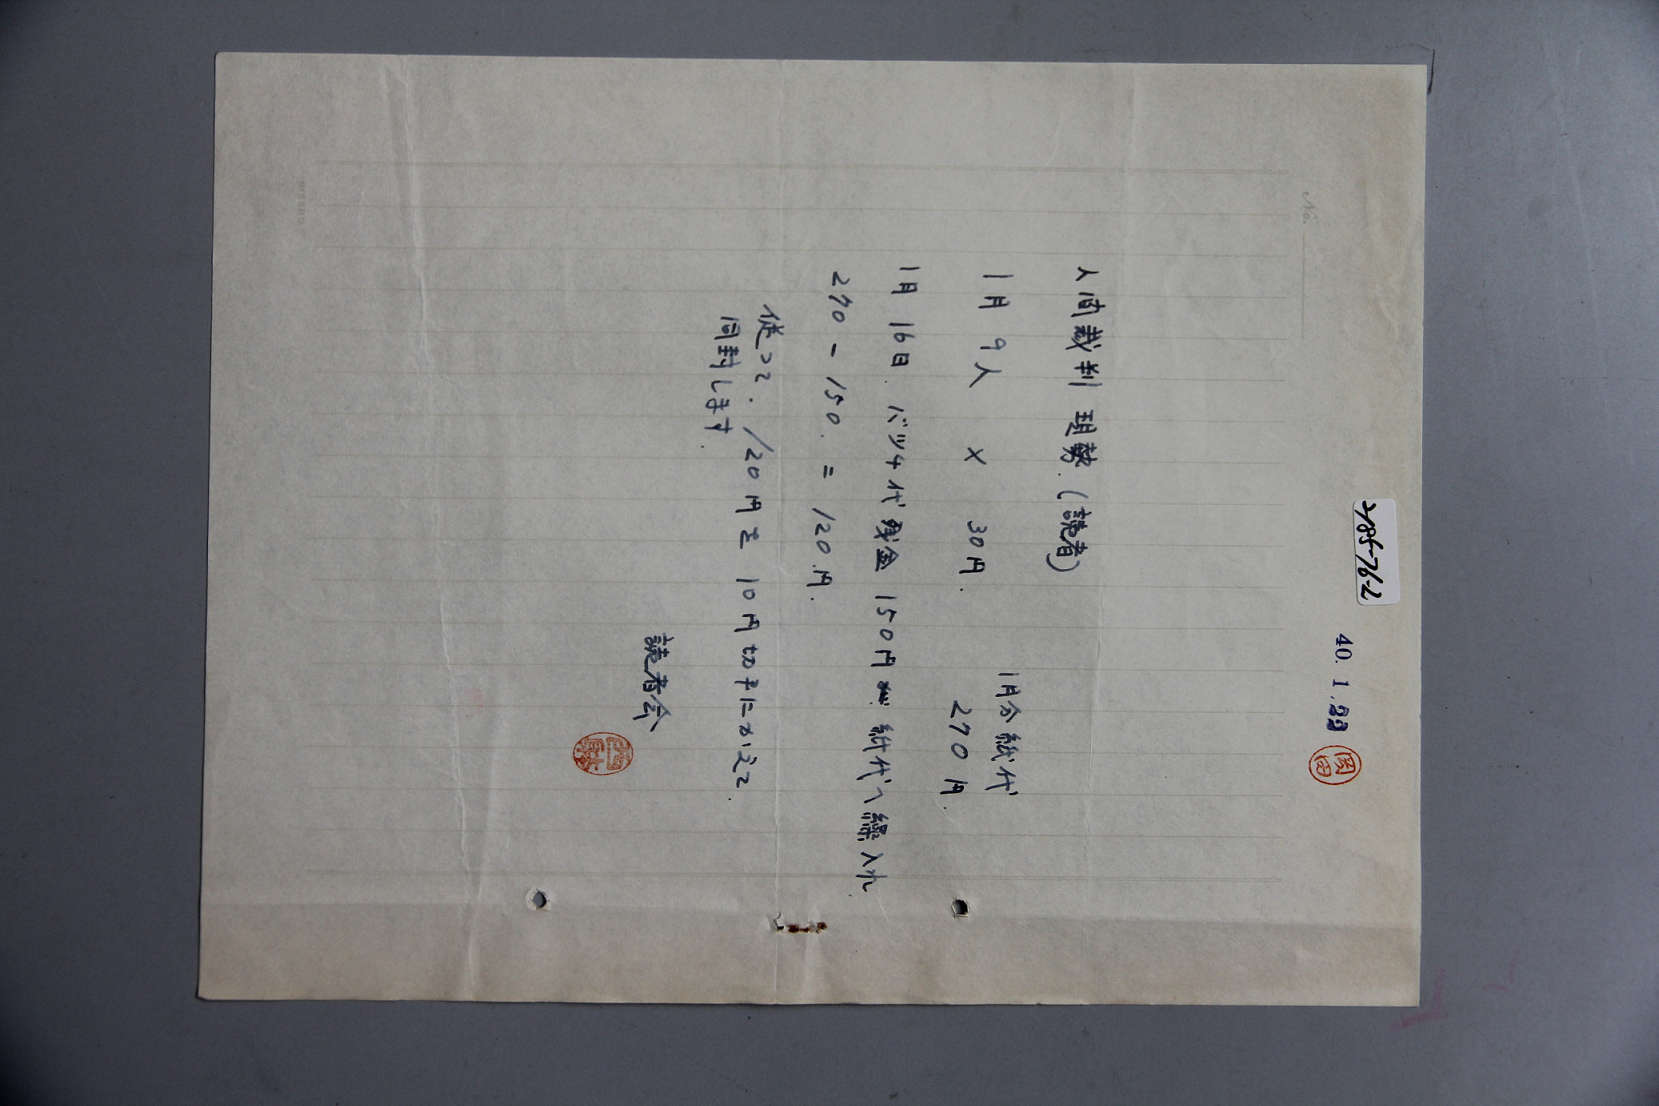 2185-76-2
40. 1. 22
No.
人間裁判 現勢.(読者)
1月 9人 × 30円.
1月分紙代
270円.
1月 16日. バッチ代残金 150円 紙代へ繰入れ
270 - 150. = 120.円.
従って. 120円を 10円切手にかえて.
同封します.
読者会